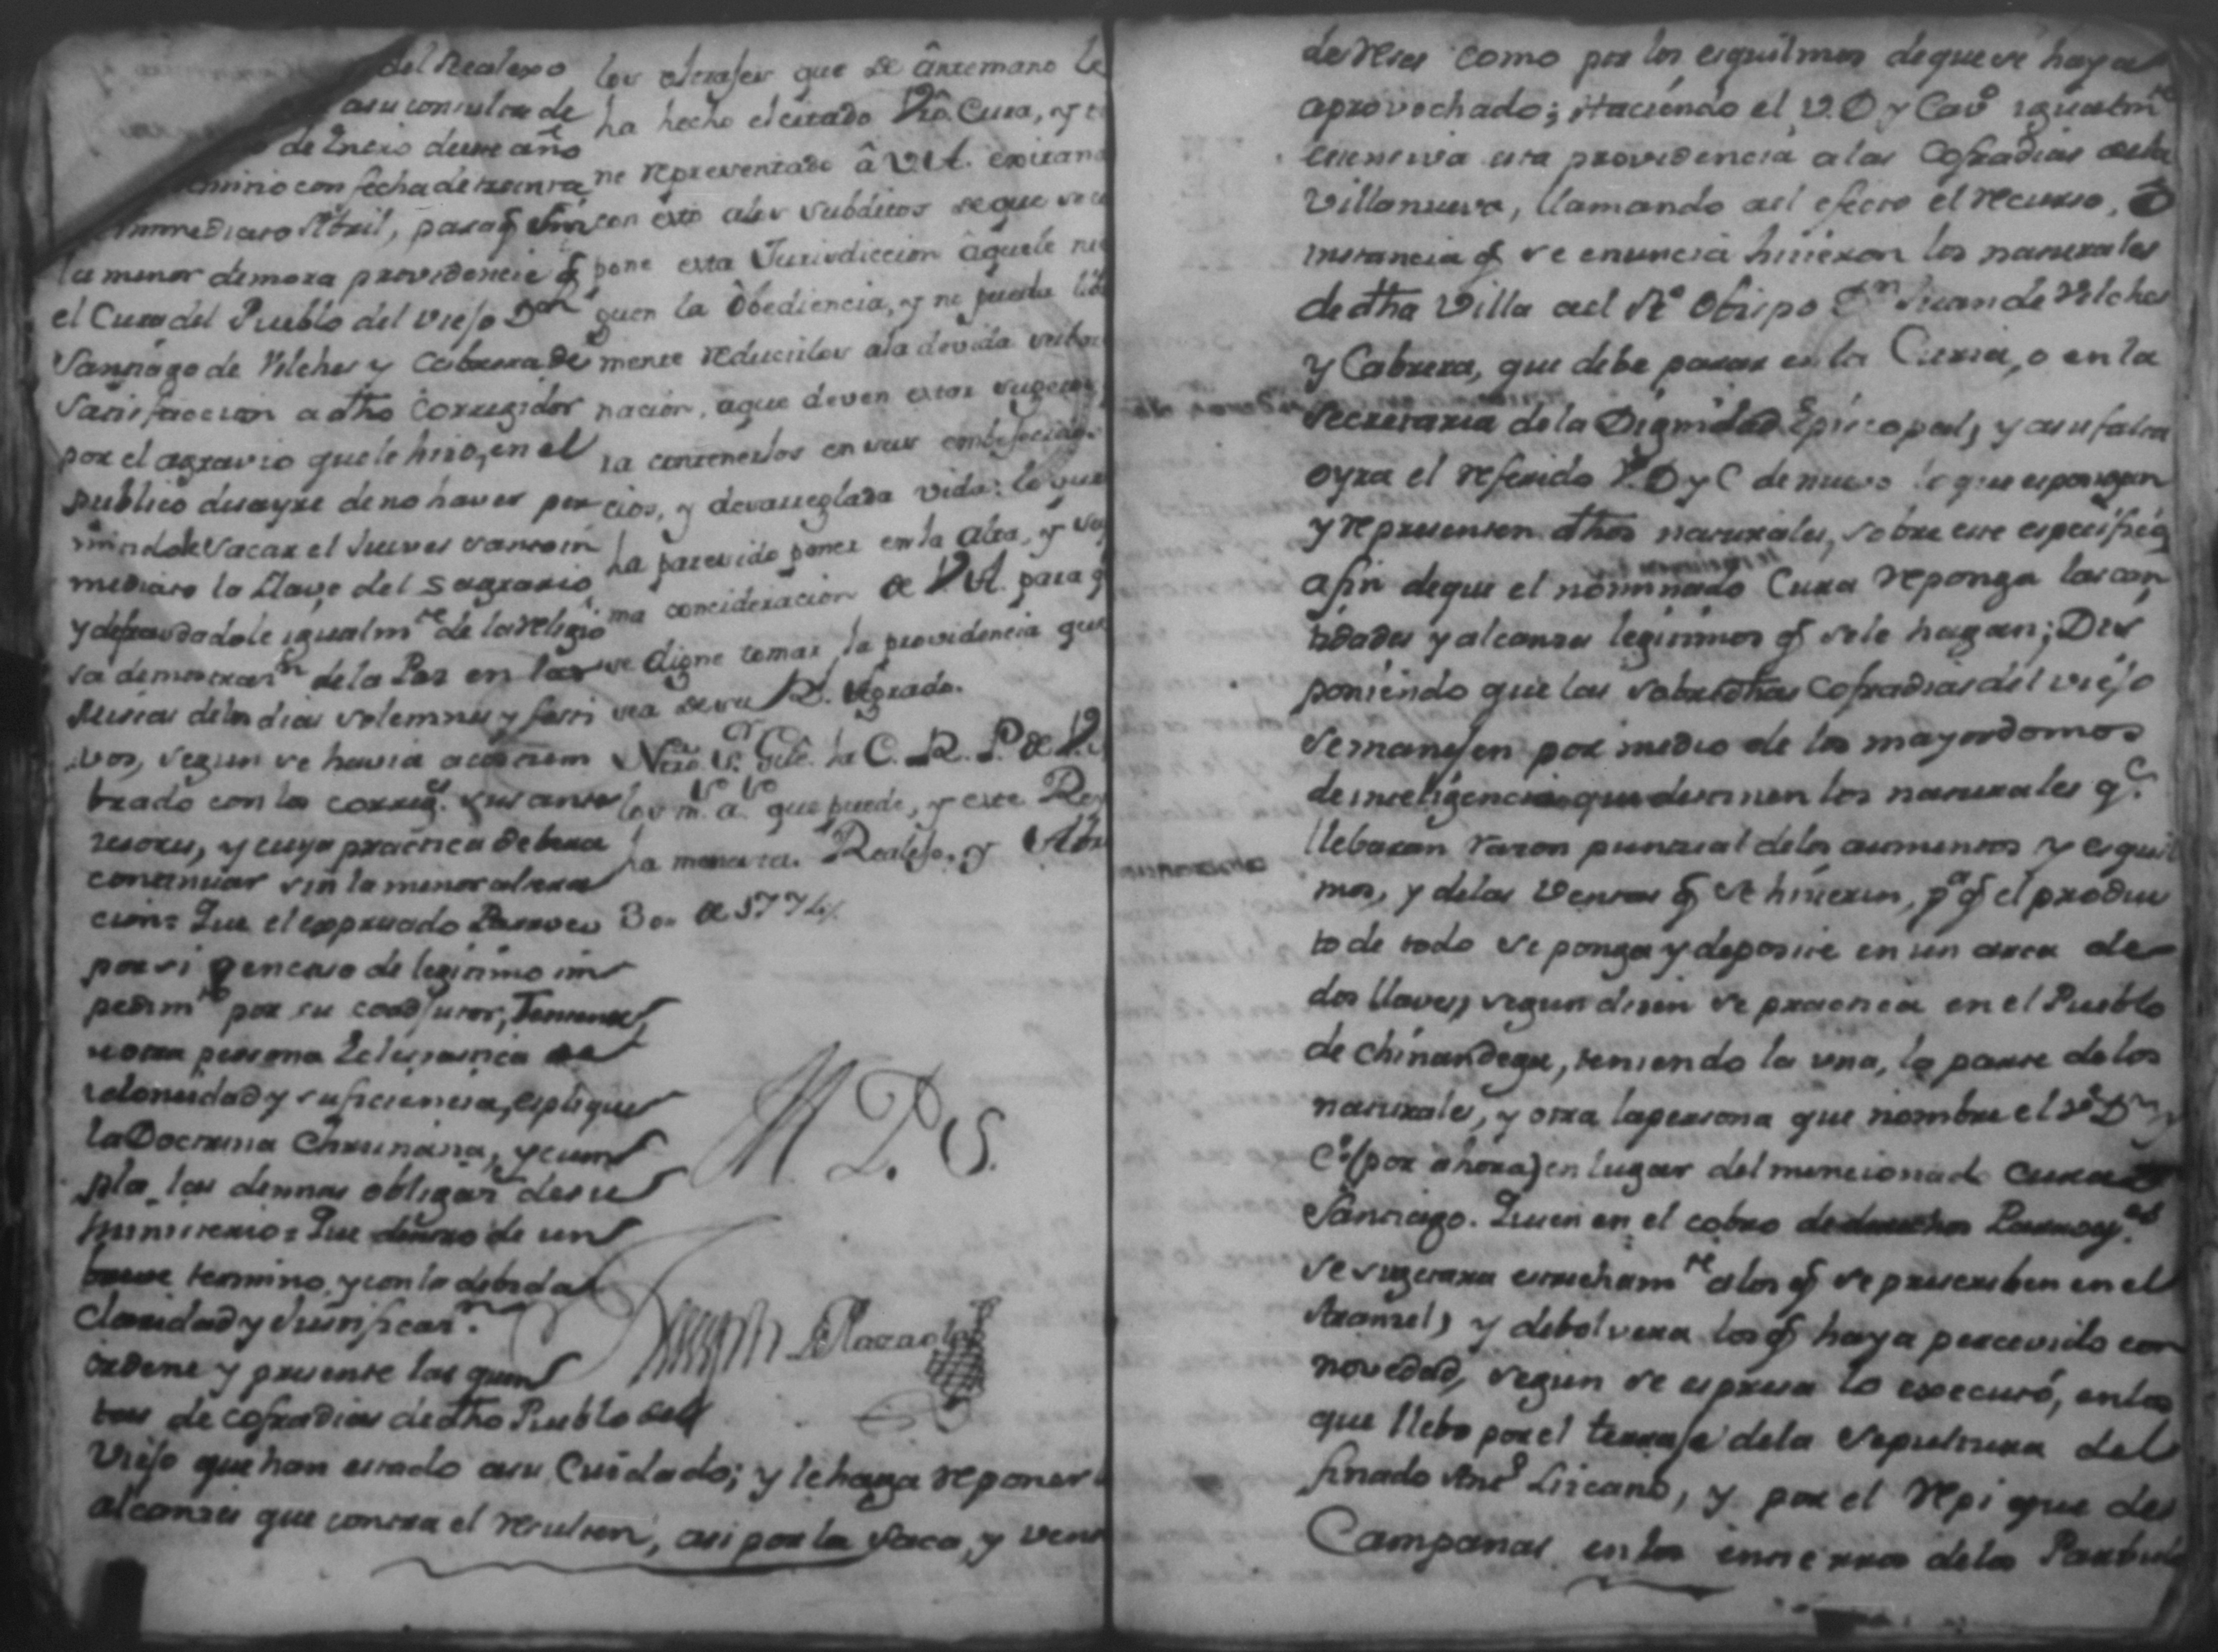 del Realexo
asu consulta de
de Enero deeste año
con fecha de treinta
inmediato Abril, para q sin
la menor demora providencie q
el Cura del Pueblo del viejo Dn
Santiago de Vilches y Cabrera de
satisfaccion a dho Corregidor
por el agravio que le hizo, en el
publico desayre de no haver per
mitidole sacar el Jueves santo in
mediato la Llave del Sagrario,
y defraudadole igualmte de la religio
sa demostracn de la Paz en las
Misas delos dias solemnes y festi
vos, segun se havia acostum
brado con los corregs sus ante
cesores, y cuya practica debera
continuar sin la menor altera
cion= Que el expresado Parroco
por si y en caso de legitimo im
pedimto por su coadjutor, Teniente,
u otra persona Eclesiastica de
idoneidad y suficiencia, explique
la Doctrina Christiana, y cum
pla las demas obligas de su
ministerio= Que dentro de un
breve termino, y con la debida
claridad y Justificacn
ordene y presente las quen
tas de cofradias de dho Pueblo del
Viejo que han estado asu Cuidado; y le haga reponer
alcanzes que contra el resulten, asi por la saca, y vent
los ultrajes que de ântemano le
ha hecho el citado Cura, y
ne representado â V.A. exitan
con esto alos subditos de que
pone esta Jurisdiccion âquele nie
guen la Obediencia, y no pueda
mente reducirlos ala devida subor
nacion, aque deven estar sugetos,
ra contenerlos en sus
cios, y desarreglada vida: lo que
ha parecido poner en la alta, y
ma concideracion de V.A. para q
se digne tomar la providencia que
sea de su Rl. Agrado.
Nro. Sr. Gue. la C. R. P. de V.
los ms. as. que puede, y este Rey
ha menester. Realejo, y Abri
30,, de 1774.
M. P. S.
de reses como por los esquilmos de que se haya
aprovechado; Haciendo el V. D y Cavo igualmte
extensiva esta providencia a las Cofradias dela
Villanueva, llamando ael efecto el recurso, o
instancia q se enuncia hicieron los naturales
de dha Villa ael Rdo Obispo Dn Juan de Vilches
y Cabrera, que debe parar en la Curia, o en la
Secretaria de la Dignidad Episcopal, y asu falta
oyra el referido V. D y C de nuevo lo que expongan
y representen dhos naturales, sobre este especifico
afin de que el nominado Cura reponga las can
tidades y alcanzes legitimos q se le hagan; Dis
poniendo que las sobredhas Cofradias del viejo
se manejen por medio de los mayordomos
de inteligencia que destinen los naturales qe
llebaran razon puntual delos aumentos y esquil
mos, y delas Ventas q se hicieren, pa q el produc
to de todo se ponga y deposite en un arca de
dos llaves, segun disen se practica en el Pueblo
de Chinandega, teniendo la una, la parte delos
naturales, y otra la persona que nombre el Ve Dn y
Co (por ahora) en lugar del mencionado Cura
Santiago. Quien en el cobro de derechos Parroqs
se sugetara estrechamte alos q se prescriben en el
Aranzel, y debolvera los q haya percevido con
novedad, segun se expresa lo executó, en los
que llebo por el terraje dela sepultura del
finado Anto Liscano, y por el repique de
Campanas en los entierros delos Parbulo